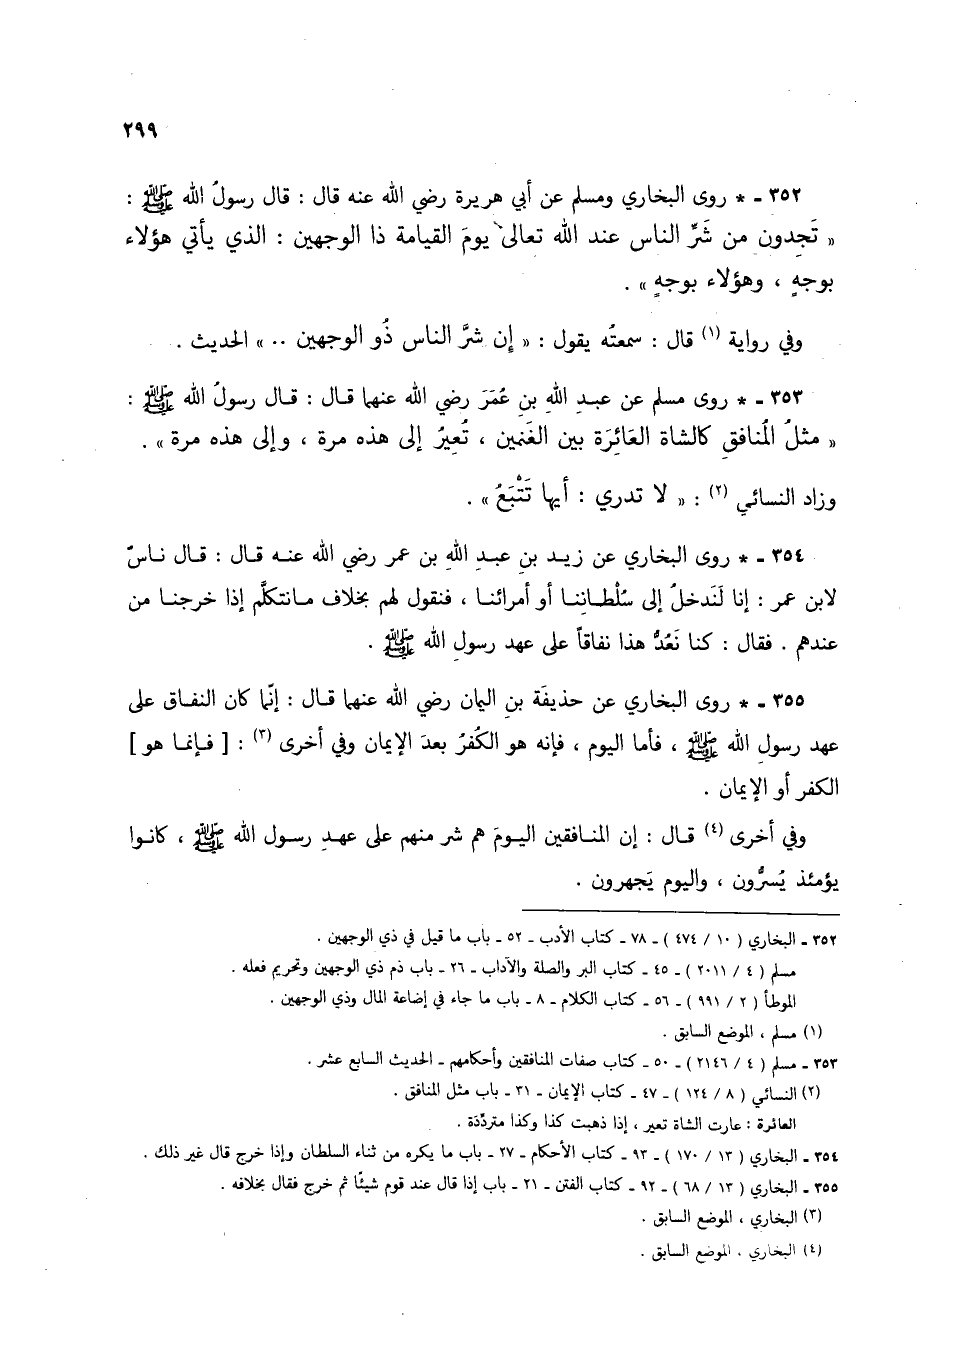 ٢٩٩
٣٥٢ - * روى البخاري ومسلم عن أبي هريرة رضي الله عنه قال : قال رسولُ الله ﷺ :
« تَجِدون من شَرِّ الناس عند الله تعالى يومَ القيامة ذا الوجهين : الذي يأتي هؤلاء
بوجهٍ ، وهؤلاء بوجهٍ » .
وفي رواية (١) قال : سمعتُه يقول : « إن شرَّ الناس ذُو الوجهين .. » الحديث .
٣٥٣ - * روى مسلم عن عبدِ اللهِ بنِ عُمَرَ رضي الله عنهما قال : قال رسولُ الله ﷺ :
« مثلُ المُنافقِ كالشاة العَائِرَة بين الغَنمين ، تُعِيرُ إلى هذه مرة ، وإلى هذه مرة » .
وزاد النسائي (٢) : « لا تدري : أيها تَتْبَعُ » .
٣٥٤ - * روى البخاري عن زيد بنِ عبدِ اللهِ بن عمر رضي الله عنه قال : قال ناسٌ
لابن عمر : إنا لَنَدخلُ إلى سُلْطانِنا أو أمرائنا ، فنقول لهم بخلاف مانتكلَّم إذا خرجنا من
عندهم . فقال : كنا نَعُدُّ هذا نفاقاً على عهد رسولِ الله ﷺ .
٣٥٥ - * روى البخاري عن حذيفَة بنِ اليمان رضي الله عنهما قال : إنّما كان النفاق على
عهد رسولِ الله ﷺ ، فأما اليوم ، فإنه هو الكُفرُ بعدَ الإيمان وفي أخرى (٣) : [ فإنما هو ]
الكفر أو الإيمان .
وفي أخرى (٤) قال : إن المنافقين اليومَ هم شر منهم على عهدِ رسول الله ﷺ ، كانوا
يؤمئذ يُسرُّون ، واليوم يَجهرون .
٣٥٢ - البخاري ( ١٠ / ٤٧٤ ) - ٧٨ - كتاب الأدب - ٥٢ - باب ما قيل في ذي الوجهين .
مسلم ( ٤ / ٢٠١١ ) - ٤٥ - كتاب البر والصلة والآداب - ٢٦ - باب ذم ذي الوجهين وتحريم فعله .
الموطأ ( ٢ / ٩٩١ ) - ٥٦ - كتاب الكلام - ٨ - باب ما جاء في إضاعة المال وذي الوجهين .
(١) مسلم ، الموضع السابق .
٣٥٣ - مسلم ( ٤ / ٢١٤٦ ) - ٥٠ - كتاب صفات المنافقين وأحكامهم - الحديث السابع عشر .
(٢) النسائي ( ٨ / ١٢٤ ) - ٤٧ - كتاب الإيمان - ٣١ - باب مثل المنافق .
العائرة : عارت الشاة تعير ، إذا ذهبت كذا وكذا متردِّدَة .
٣٥٤ - البخاري ( ١٣ / ١٧٠ ) - ٩٣ - كتاب الأحكام - ٢٧ - باب ما يكره من ثناء السلطان وإذا خرج قال غير ذلك .
٣٥٥ - البخاري ( ١٣ / ٦٨ ) - ٩٢ - كتاب الفتن - ٢١ - باب إذا قال عند قوم شيئًا ثم خرج فقال بخلافه .
(٣) البخاري ، الموضع السابق .
(٤) البخاري ، الموضع السابق .